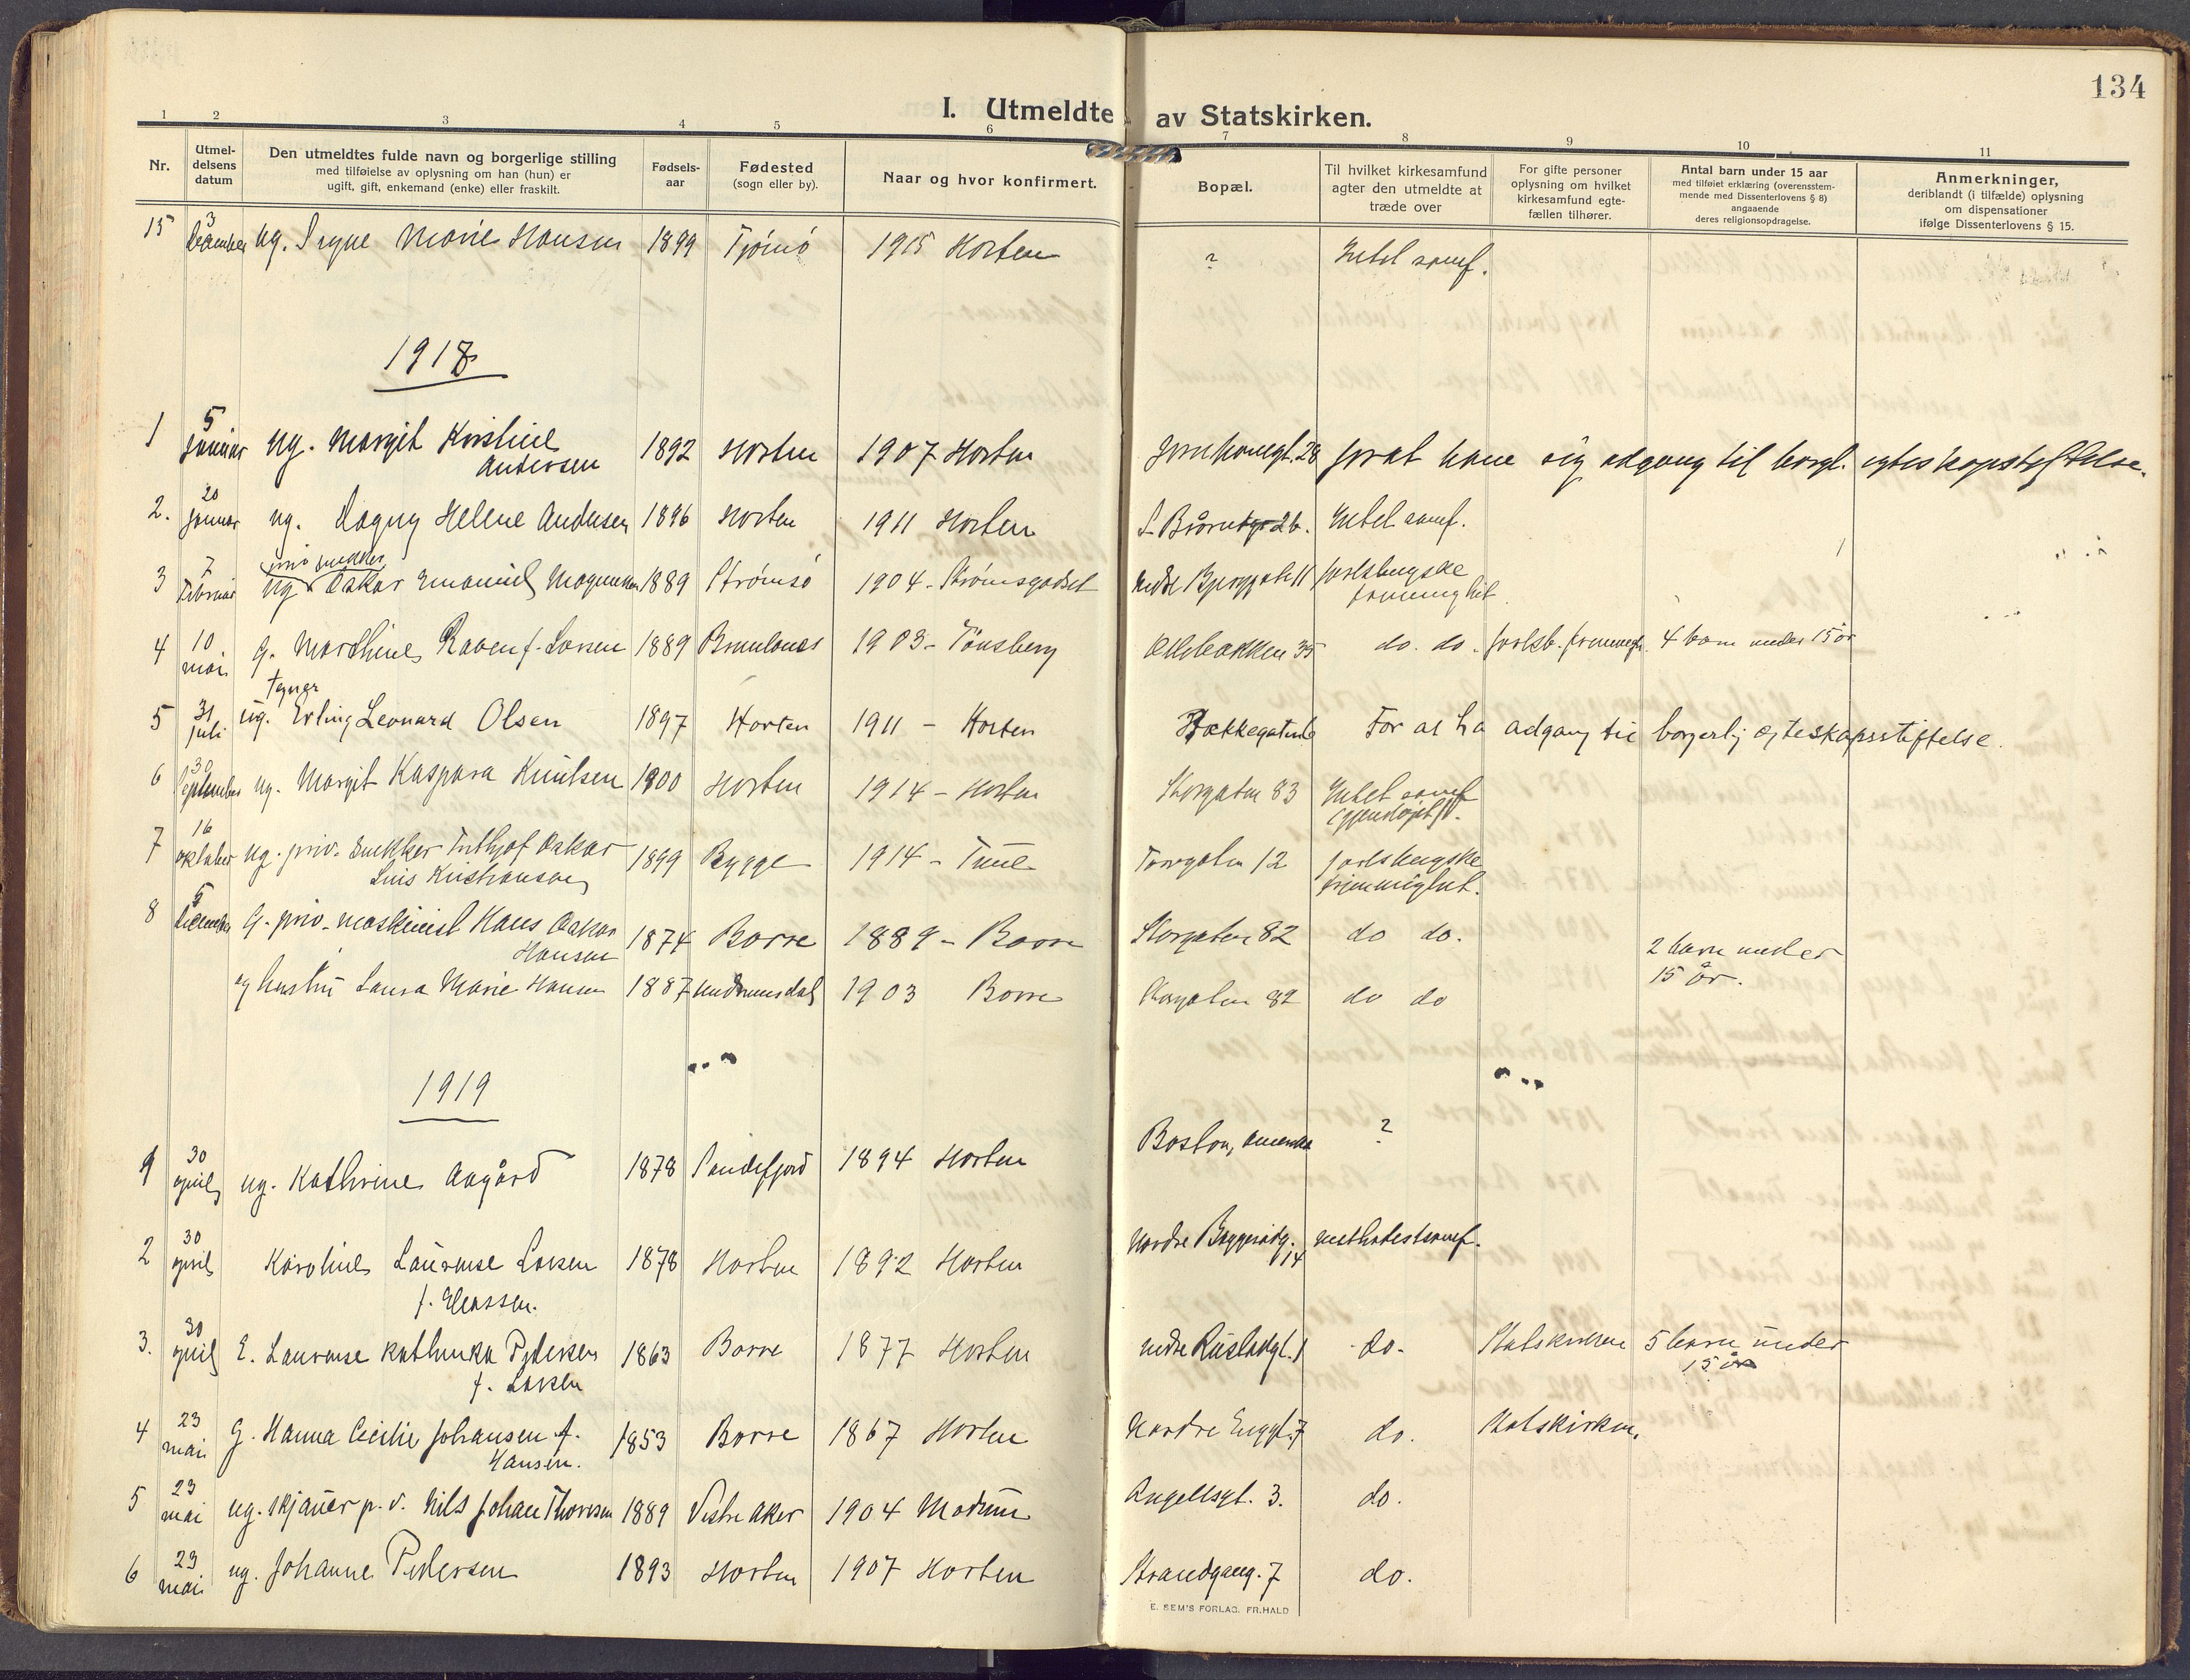 134
I. Utmeldte av Statskirken.
1 2 3 4 5 6 7 8 9 10 11
Nr.
Utmel-
delsens
datum
Den utmeldtes fulde navn og borgerlige stilling
med tilføielse av oplysning om han (hun) er
ugift, gift, enkemand (enke) eller fraskilt.
Fødsels-
aar
Fødested
(sogn eller by).
Naar og hvor konfirmert.
Bopæl.
Til hvilket kirkesamfund
agter den utmeldte at
træde over
For gifte personer
oplysning om hvilket
kirkesamfund egte-
fællen tilhører.
Antal barn under 15 aar
med tilføiet erklæring (overensstem-
mende med Dissenterlovens § 8)
angaaende
deres religionsopdragelse.
Anmerkninger,
deriblandt (i tilfælde) oplysning
om dispensationer
ifølge Dissenterlovens § 15.
15 3 december ug. Signe Marie Hansen 1899 Tjømø 1915 Horten ? Intet samf.
1918
1 5 januar ug. Margit Kristine
Andersen 1892 Horten 1907 Horten 28 for at have sig adgang til borgl. egteskapsstiftelse.
2. 20 januar ug. Dagny Helene Andersen 1896 Horten 1911 Horten 26. Intet samf.
3 7 februar ug Oskar Emanuel Magnussen 1889 Strømsø 1904 - Strømsgodset Nedre 11 Jarlsbergske
frimenighet
4 10 mai g. Marthine Raven f. Larsen 1889 Brunlanes 1903 - Tønsberg 35 do. do. Jarlsb. frimenigh. 4 barn under 15 år
5 31 juli ug. Erling Leonard Olsen 1897 Horten 1911 - Horten For at ha adgang til borgerlig egteskapsstiftelse.
6 30 september ug. Margit Kaspara Knutsen 1900 Horten 1914 - Horten Storgaten 83 Intet samf
7 16 oktober ug. priv. snekker Frithjof Oskar
Kristiansen 1899 Rygge 1914 - Tune Torvgaten 12 Jarlsbergske
frimenighet.
8 5 december G. priv. maskinist Hans Oskar
Hansen 1874 Borre 1889 - Borre Storgaten 82 do do. 2 barn under
15 år.
og hustru Laura Marie Hansen 1887 1903 Borre Storgaten 82 do do
1919
1 30 april ug. Kathrine Aagård 1878 Sandefjord 1894 Horten Boston, Amerika ?
2 30 april Karoline Laurense Larsen 1878 Horten 1892 Horten Nordre 14 methodistsamf.
f. Eliassen.
3. 30 april E. Laurense Kathinka Pedersen 1863 Borre 1877 Horten nedre Rustadgt. 1 do. Statskirken 5 barn under
f. Larsen 15 år
4 23 mai g. Hanna Cecilie Johansen f. 1853 Borre 1867 Horten Nordre Enggt. 7 do. Statskirken.
Hansen.
5 23 mai ug. skjauer p. v. Nils Johan Thoresen 1889 Vestre Aker 1904 Modum Angellsgt. 3. do.
6 23 mai ug. Johanne Pedersen 1893 Horten 1907 Horten Strandgang. 7 do.
E. SEM'S FORLAG. FR.HALD